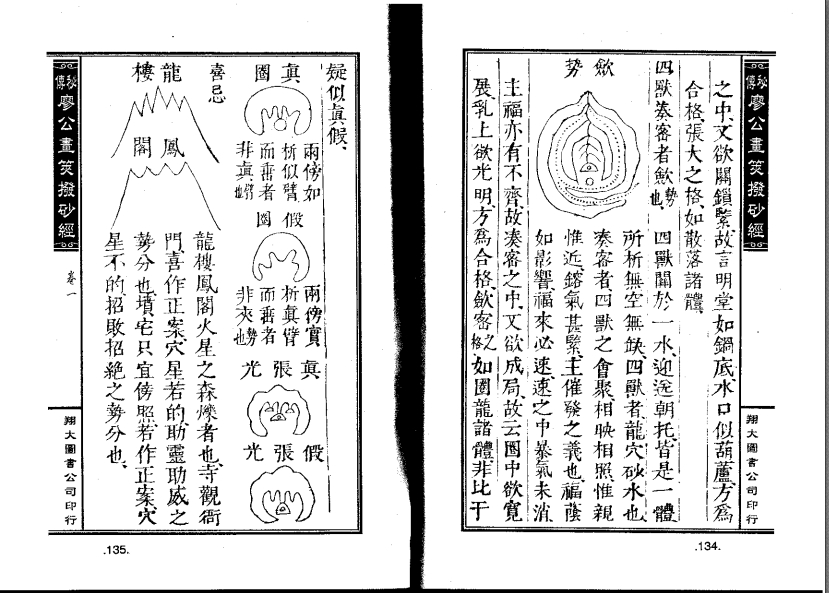 秘傳廖公畫筴撥砂經
翔大圖書公司印行
之中、又欲關鎖緊、故言明堂如鍋底、水口似葫蘆、方為
合格、張大之格、如散落諸體、
四獸湊密者歛勢也、四獸關於一水、迎送朝托、皆是一體
歛勢
所析無空無缺、四獸者、龍穴砂水也、
湊密者四獸之會聚、相映相照、惟親
惟近、鎔氣甚緊、主催發之義也、福蔭
如影響、福來必速、速之中暴氣未消、
主福亦有不齊、故湊密之中、又欲成局、故云圓中欲寬
展、乳上欲光明、方為合格、歛密之格、如圓龍諸體、非比干
.134.
疑似真假、
真圈
兩傍如
析似臂、
而番者
非真臂也、
假圈
兩傍實
析真臂
而番者
非夾勢也、
真張光
假張光
喜忌
龍樓
鳳閣
龍樓鳳閣、火星之森爍者也、寺觀衙
門、喜作正案、穴星若的、助靈助威之
勢分也、墳宅只宜傍照、若作正案、穴
星不的、招敗招絕之勢分也、
秘傳廖公畫筴撥砂經
卷一
翔大圖書公司印行
.135.